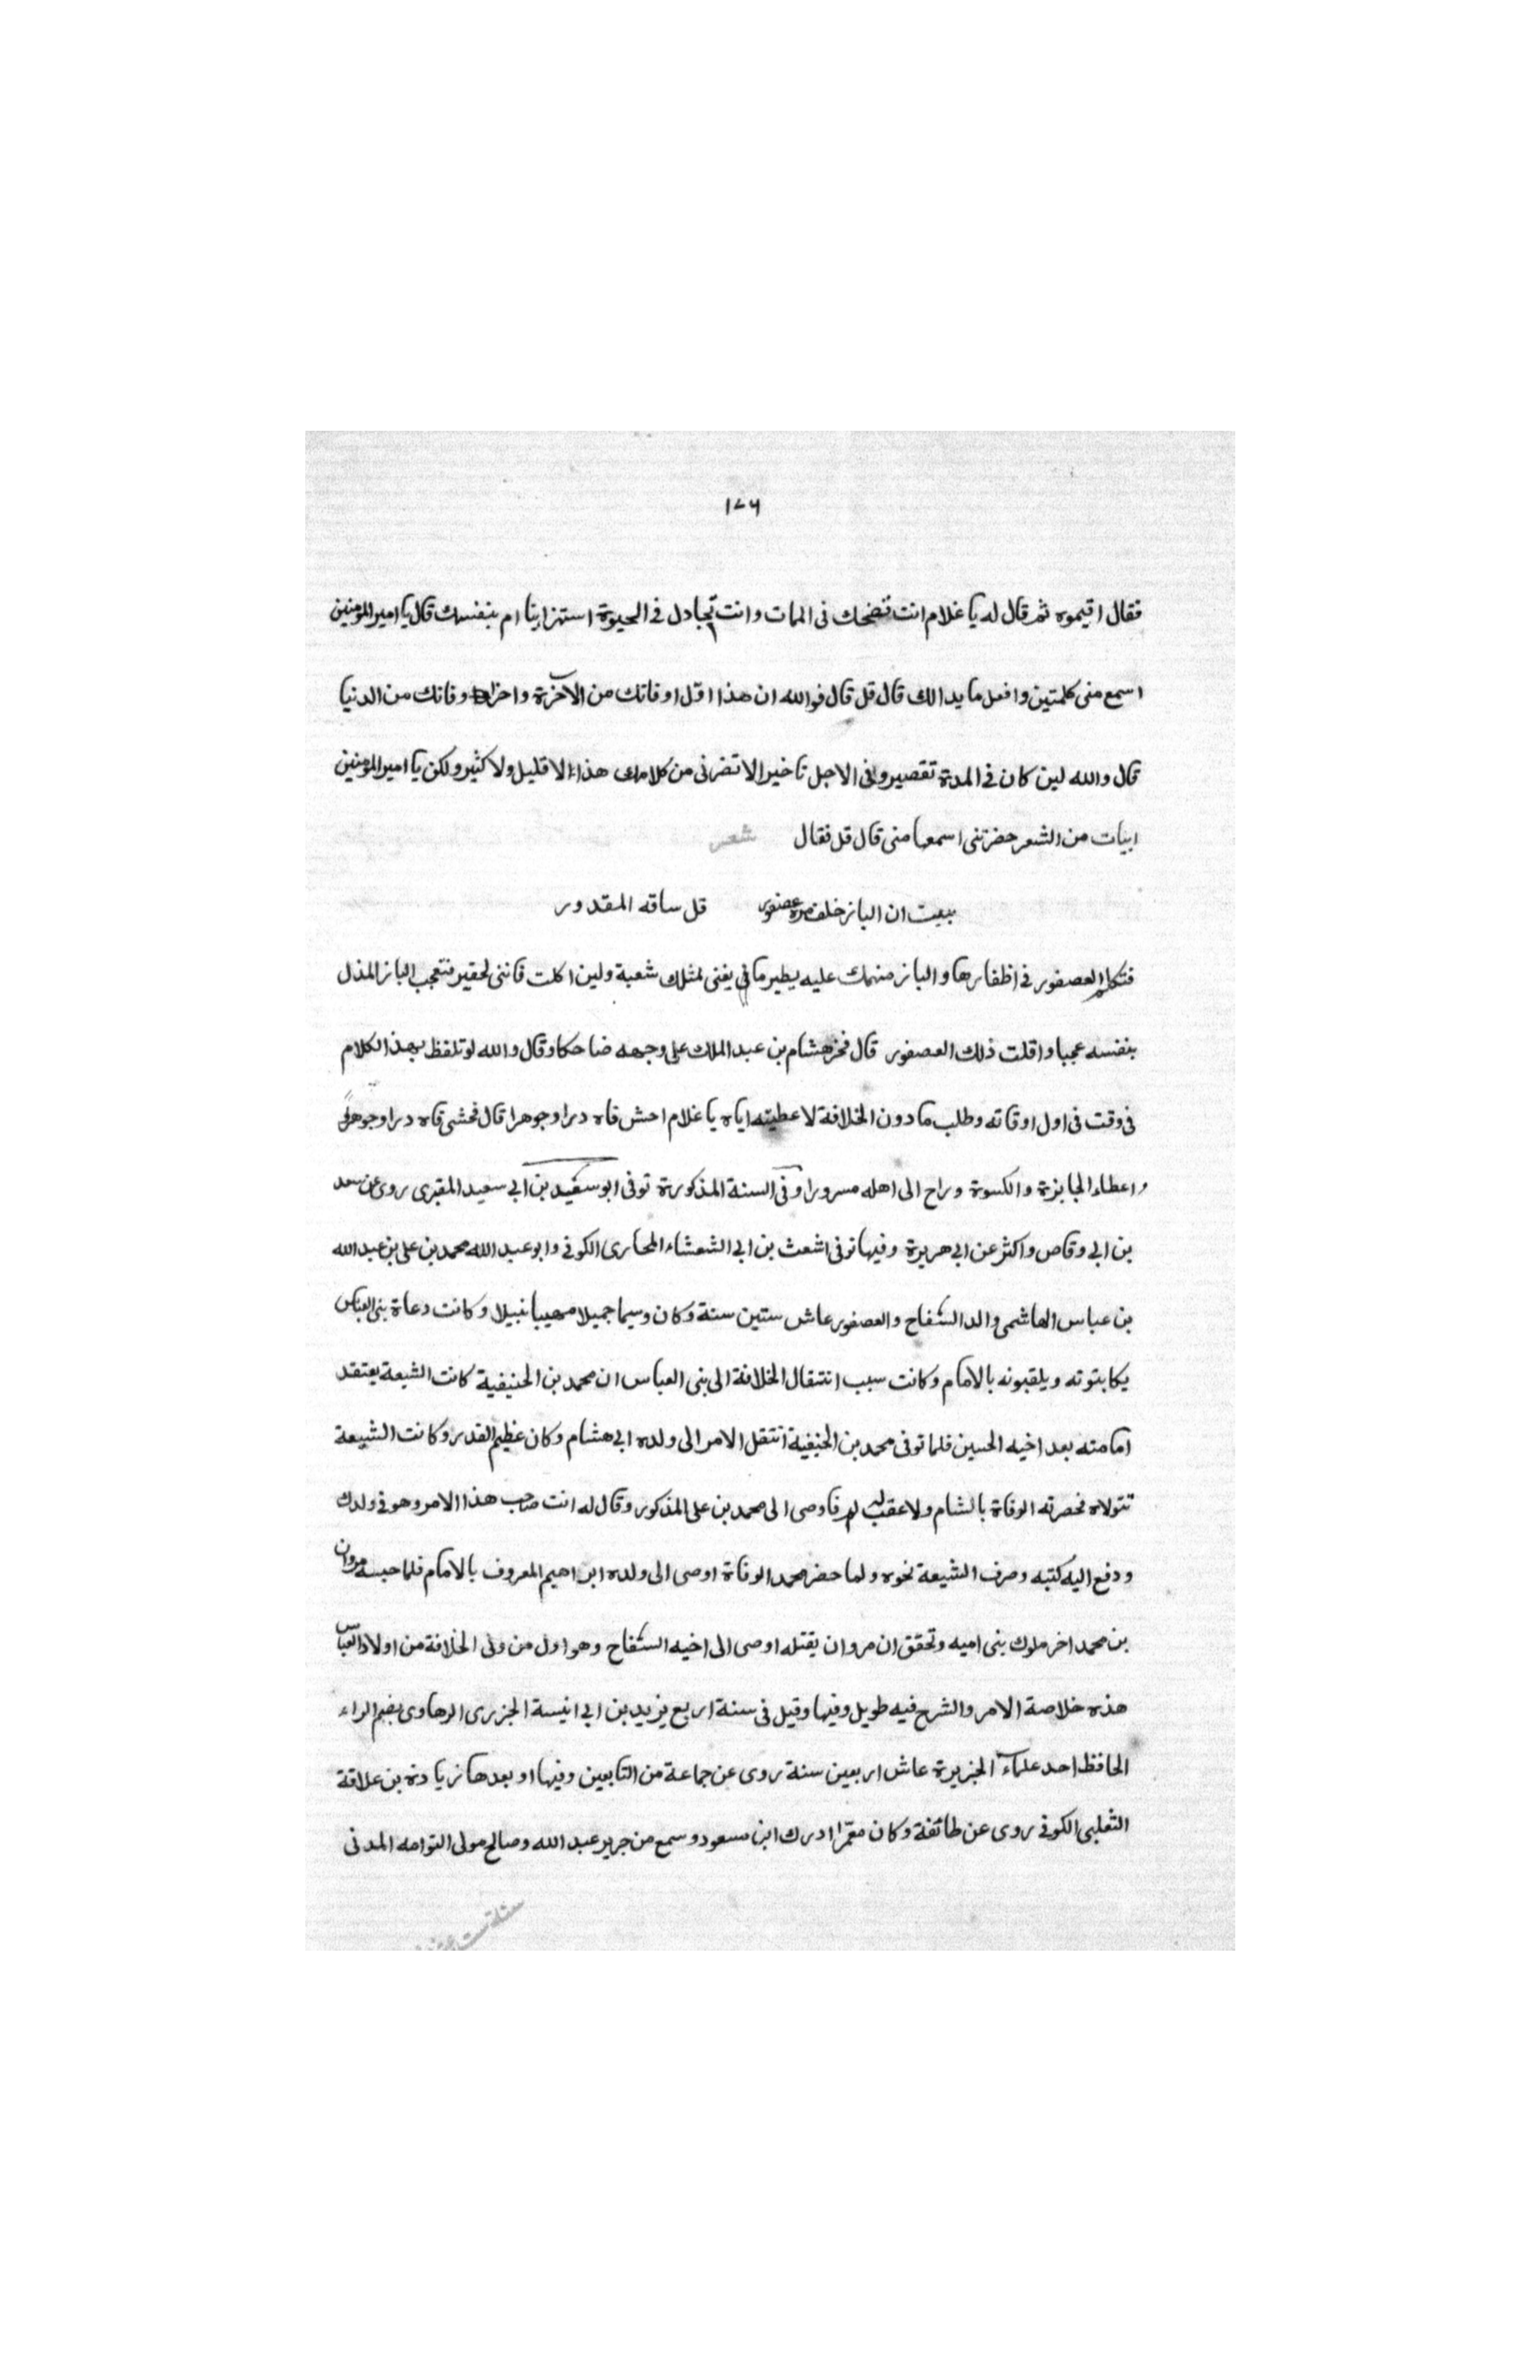 ١٧٦
فقال اقيموه ثم قال له يا غلام انت تضحك فى الممات وانت تجادل فى الحيوة استهزا بنا ام بنفسك قال يا امير المؤمنين
اسمع منى كلمتين وافعل ما بدا لك قال قل قال فوالله ان هذا اول اوقاتك من الآخرة واخر اوقاتك من الدنيا
قال والله لين كان فى المدة تقصير وفى الاجل تاخير لا تضرنى من كلامك هذا لا قليل ولا كثير ولكن يا امير المؤمنين
ابيات من الشعر حضرتنى اسمعها منى قال قل فقال شعر
بيت ان الباز خلف مرة عصفور قل ساقه المقدور
فتكلم العصفور فى اظفارها والباز منهمك عليه يطير ما فى يغنى لمثلك شعبة ولين اكلت فاننى لحقير فتعجب الباز المذل
بنفسه عجبا واقلت ذلك العصفور قال فخر هشام بن عبد الملك على وجهه ضاحكا وقال والله لو تلفظ بهذا الكلام
فى وقت فى اول اوقاته وطلب ما دون الخلافة لاعطيته اياه يا غلام احش فاه درا وجوهرا قال فحشى فاه درا وجوهرا
واعطاه الجايزة والكسوة وراح الى اهله مسرورا وفى السنة المذكورة توفى ابو سعيد بن ابي سعيد المقبرى روى عن سعد
بن ابي وقاص واكثر عن ابي هريرة وفيها توفى اشعث بن ابي الشعشاء المحاربى الكوفى وابو عبد الله محمد بن على بن عبد الله
بن عباس الهاشمى والد السفاح والعصفور عاش ستين سنة وكان وسيما جميلا مهيبا نبيلا وكانت دعاة بنى العباس
يكاتبونه ويلقبونه بالامام وكانت سبب انتقال الخلافة الى بنى العباس ان محمد بن الحنيفية كانت الشيعة يعتقد
امامته بعد اخيه الحسين فلما توفى محمد بن الحنيفية انتقل الامر الى ولده ابي هشام وكان عظيم القدر وكانت الشيعة
تتولاه فحصرته الوفاة بالشام ولا عقب له فاوصى الى محمد بن على المذكور وقال له انت صاحب هذا الامر وهو فى ولدك
ودفع اليه كتبه وصرف الشيعة نحوه ولما حضر محمد الوفاة اوصى الى ولده ابراهيم المعروف بالامام فلما حبسه مروان
بن محمد اخر ملوك بنى اميه وتحقق ان مروان يقتله اوصى الى اخيه السفاح وهو اول من ولى الخلافة من اولاد العباس
هذه خلاصة الامر والشرح فيه طويل وفيها وقيل فى سنة اربع يزيد بن ابي انيسة الجزرى الرهاوى بضم الراء
الحافظ احد علماء الجزيرة عاش اربعين سنة روى عن جماعة من التابعين وفيها او بعدها زيادة بن علاقة
الثعلبى الكوفى روى عن طائفة وكان معمرا ادرك ابن مسعود وسمع من جرير عبد الله وصالح مولى التوامه المدنى
سنة ست